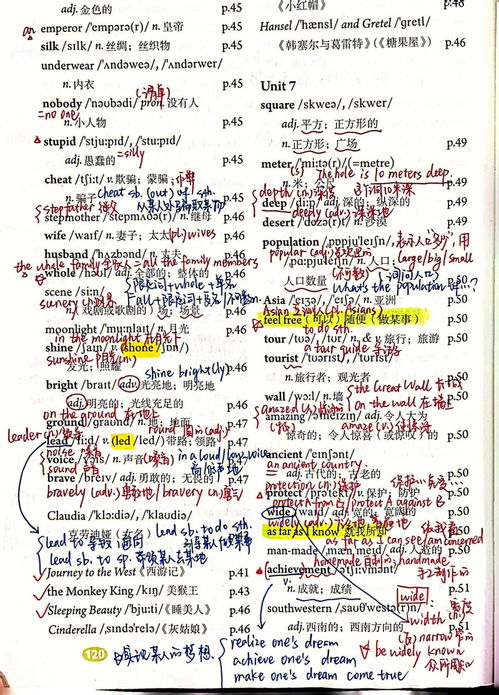 adj. 金色的 p.45
an
emperor /'empərə(r)/ n. 皇帝 p.45
silk /sɪlk/ n. 丝绸；丝织物 p.45
underwear /'ʌndəweə/, /'ʌndərwer/
n. 内衣 p.45
nobody /'nəʊbədi/ pron. 没有人
=no one
n. 小人物 p.45
stupid /'stjuːpɪd/, /'stuːpɪd/
adj. 愚蠢的 =silly p.45
cheat /tʃiːt/ v. 欺骗；蒙骗；
n. 骗子 cheat sb. (out) of sth.
stepfather 继父
stepmother /'stepmʌðə(r)/ n. 继母 p.46
wife /waɪf/ n. 妻子；太太 (pl.) wives p.46
husband /'hʌzbənd/ n. 丈夫 p.46
the whole family = all the family members
whole /həʊl/ adj. 全部的；整体的 p.46
scene /siːn/
scenery
n. (戏剧或歌剧的) 场；场景 p.46
moonlight /'muːnlaɪt/ n. 月光 p.46
in the moonlight 在月光下
shine /ʃaɪn/ v. (shone /ʃɒn/)
sunshine 阳光 (n.)
发光；照耀 shine bright(ly) p.46
bright /braɪt/ adv. 光亮地；明亮地
adj. 明亮的；光线充足的 p.46
on the ground 在地上
ground /graʊnd/ n. 地；地面 p.46
leader (n.)
lead /liːd/ v. (led /led/) 带路；领路 p.47
noise
voice /vɔɪs/ n. 声音 in a loud/low voice p.47
sound
brave /breɪv/ adj. 勇敢的；无畏的 p.47
bravely (adv.) 勇敢地/bravery (n.)
Claudia /'klɔːdiə/, /'klaʊdiə/
克劳迪娅（女名） lead sb. to do sth. p.40
lead to 导致
lead sb. to sp. 带领某人去某地
Journey to the West《西游记》 p.41
the Monkey King /kɪŋ/ 美猴王 p.43
Sleeping Beauty /'bjuːti/《睡美人》 p.46
Cinderella /ˌsɪndə'relə/《灰姑娘》 p.46
120
实现某人的梦想
realize one's dream
achieve one's dream
make one's dream come true
《小红帽》 p.46
Hansel /'hænsl/ and Gretel /'gretl/
《韩塞尔与葛雷特》(《糖果屋》) p.46
Unit 7
square /skweə/, /skwer/
adj. 平方；正方形的
n. 正方形；广场 p.49
meter /'miːtə(r)/ (=metre)
(s) The hole is 10 meters deep.
n. 米；公尺 p.49
depth (n.) 深度 这个洞10米深
deep /diːp/ adj. 深的；纵深的 p.49
deeply (adv.) 深深地
desert /'dezə(r)t/ n. 沙漠 p.49
population /ˌpɒpju'leɪʃn/,
popular (adj.)
/ˌpɑːpju'leɪʃn/ n. 人口； large/big/small
人口数量 What's the population of...? p.50
Asia /'eɪʃə/, /'eɪʒə/ n. 亚洲 p.50
Asian (pl. Asians)
feel free（可以）随便（做某事） p.50
to do sth.
tour /tʊə/, /tʊr/ n. & v. 旅行；旅游 p.50
a tour guide 导游
tourist /'tʊərɪst/, /'tʊrɪst/
n. 旅行者；观光者 p.50
wall /wɔːl/ n. 墙 the Great Wall 长城 p.50
on the wall 在墙上
amazed (adj.)
amazing /ə'meɪzɪŋ/ adj. 令人大为
amaze (v.)
惊奇的；令人惊喜（或惊叹）的 p.50
ancient /'eɪnʃənt/
an ancient country
adj. 古代的；古老的 p.50
protection (n.) 保护
protect /prə'tekt/ v. 保护；防护 p.50
protect from B / protect A against B
wide /waɪd/ adj. 宽的；宽阔的 p.50
widely (adv.)
as far as I know 就我所知 p.50
as far as I can see/am concerned
man-made /ˌmæn'meɪd/ adj. 人造的
homemade 自制的；handmade 手工制作的
achievement /ə'tʃiːvmənt/
v.
n. 成就；成绩 p.51
wide:
southwestern /ˌsaʊθ'westə(r)n/
width (n.) 宽度
adj. 西南的；西南方向的 p.51
narrow 窄的
be widely known
众所周知